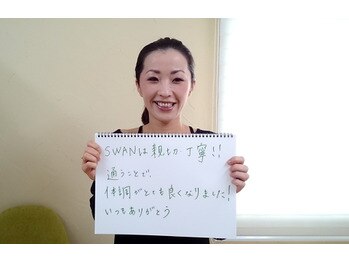 SWANは親切丁寧!!
通うことで、
体調がとても良くなりました!
いつもありがとう